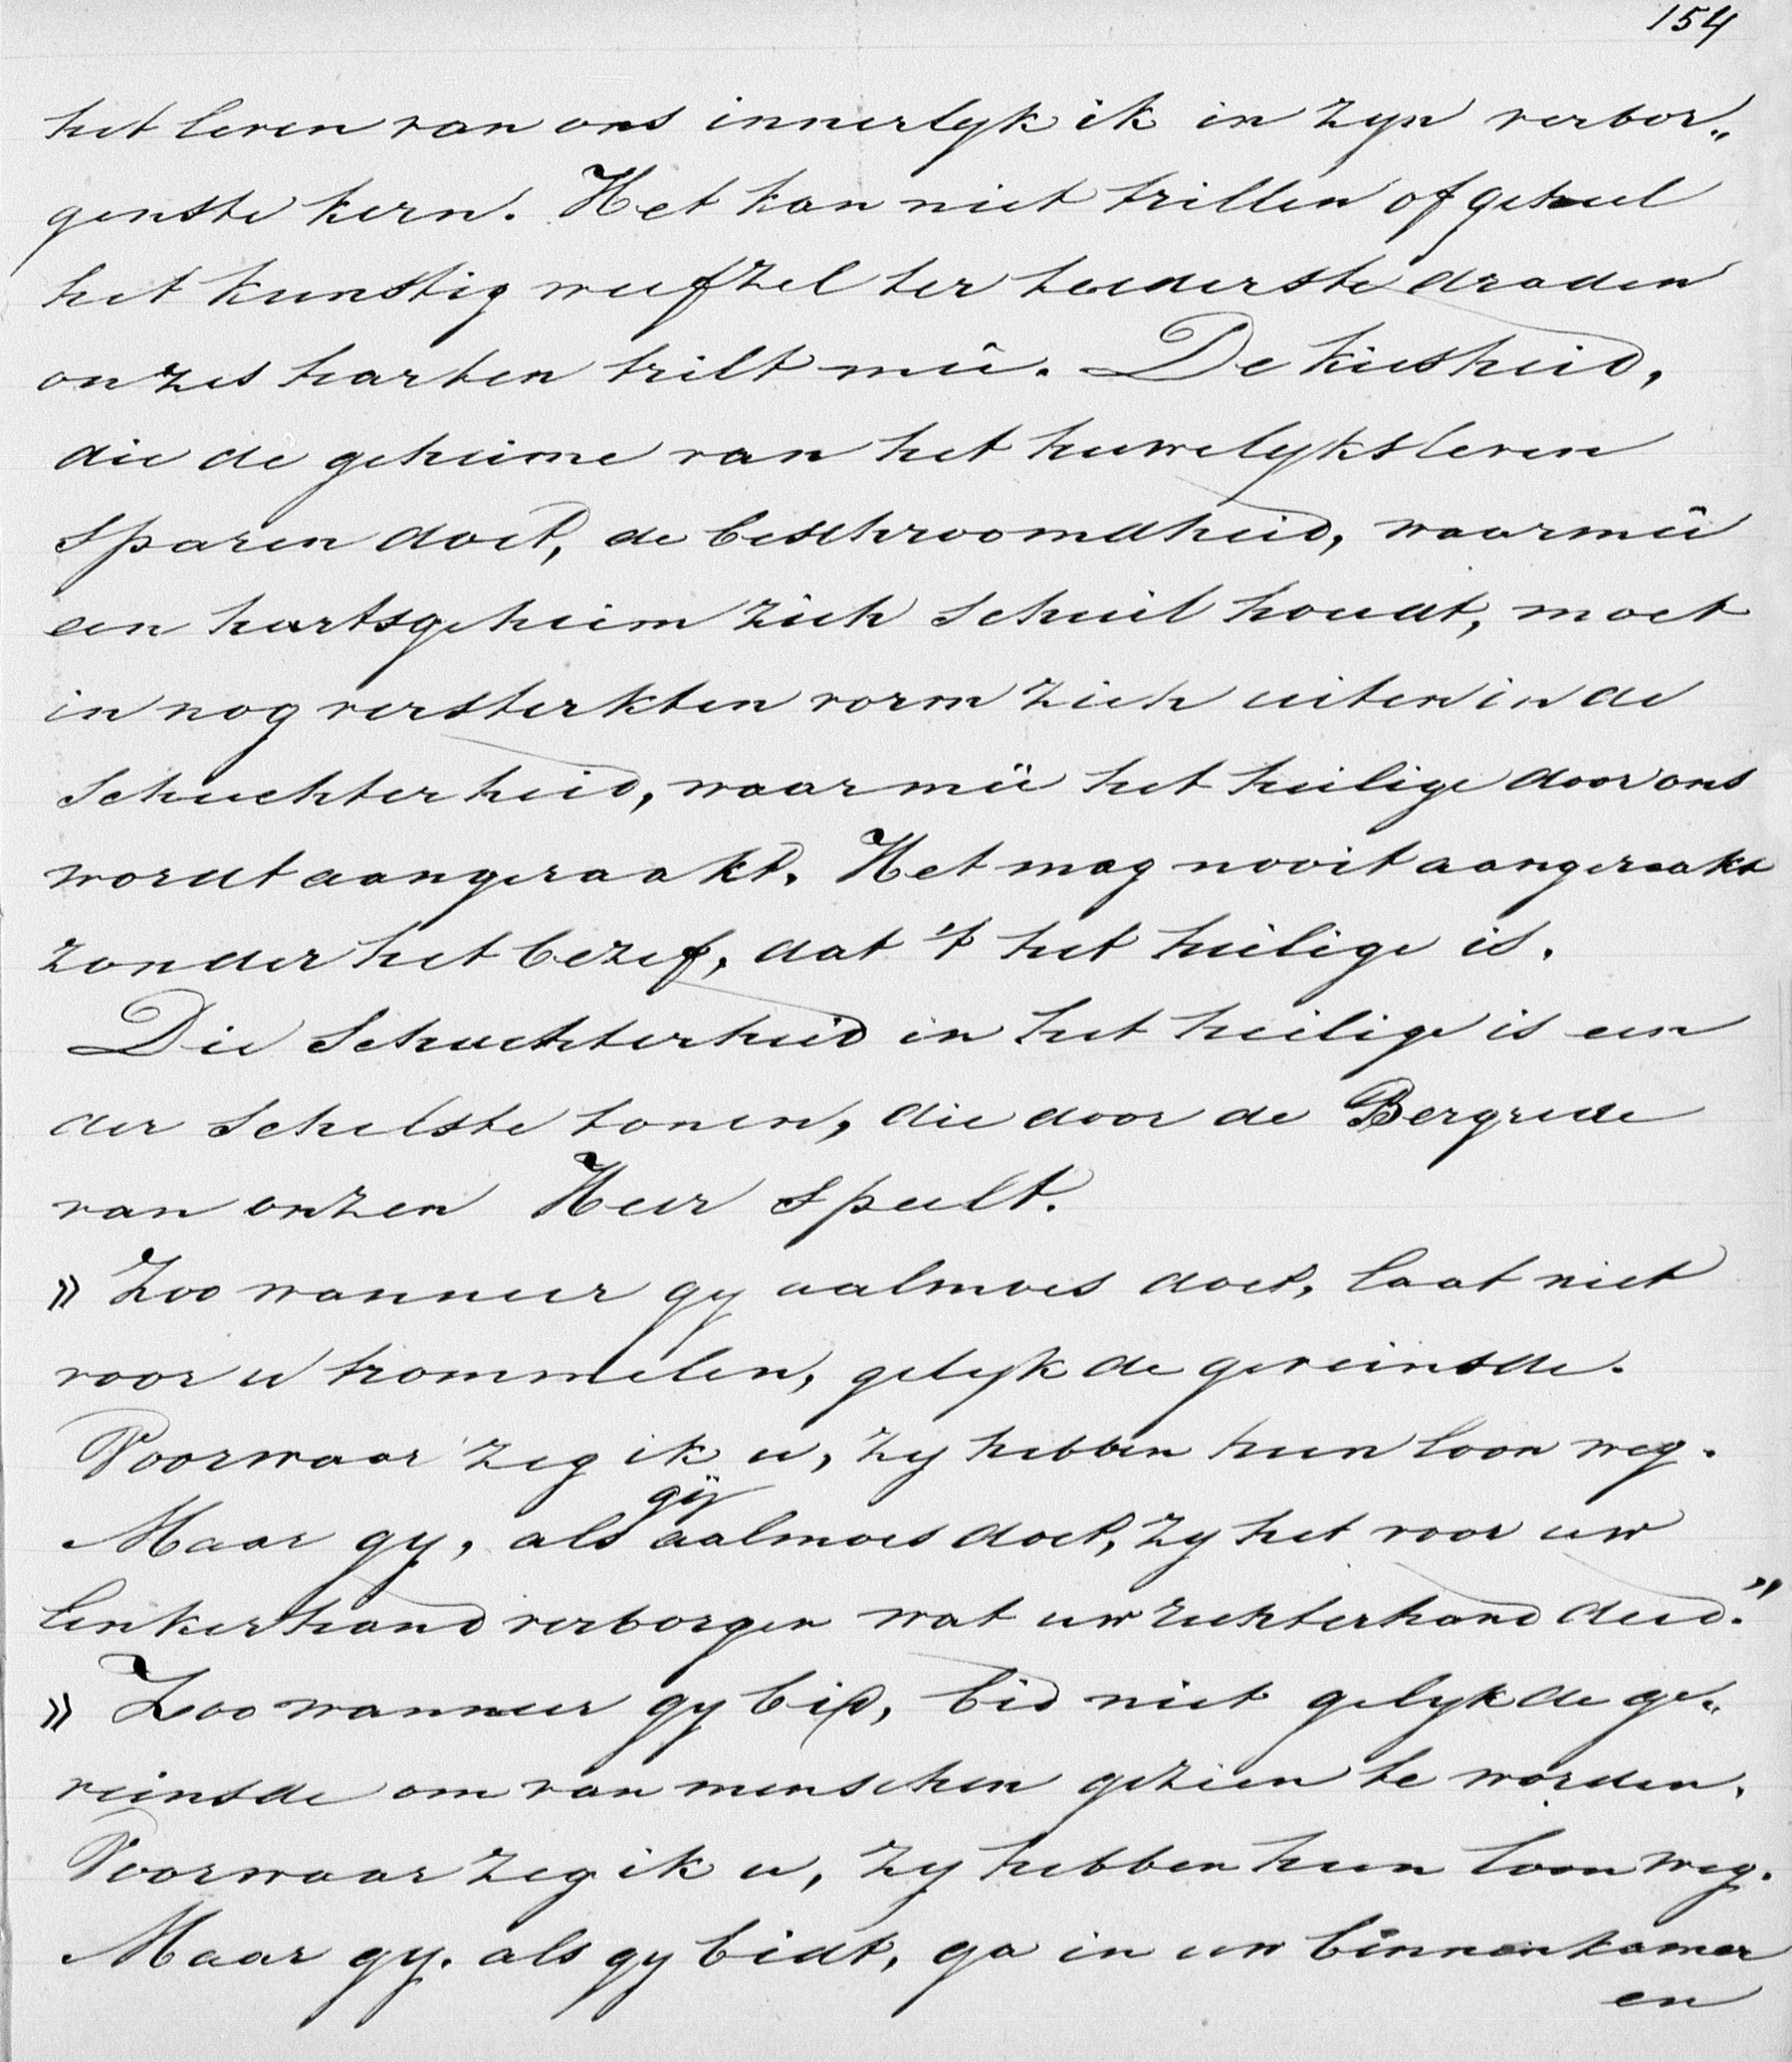 154
het leven van ons innerlyk ik in zyn verbor„
genste kern. Het kan niet trillen of geheel
het kunstig weefzel ter teederste draden
onzes harten trilt meê. De kiesheid,
die de geheime van het huwelyksleven
sparen doet, de beschroomdheid, waarmeê
een hartsgeheim zich schuil houdt, moet
in nog versterkten vorm zich uiten in de
schuchterheid, waarmeê het heilige door ons
wordt aangeraakt. Het mag nooit aangeraakt
zonder het bezef, dat 't het heilige is.
Die schuchterheid in het heilige is een
der schelste tonen, die door de Bergrede
van onzen Heer speelt.
» Zoo wanneer gy aalmoes doet, laat niet
voor u trommelen, gelyk de geveinsde.
Voorwaar zeg ik u, zy hebben hun loon weg.
Maar gy, als gij aalmoes doet, zy het voor uw
linkerhand verborgen wat uw rechterhand deed."
» Zoo wanneer gy bid, bid niet gelyk de ge„
veinsde om van menschen gezien te worden.
Voorwaar zeg ik u, zy hebben hun loon weg.
Maar gy. als gy bidt, ga in uw binnenkamer
en